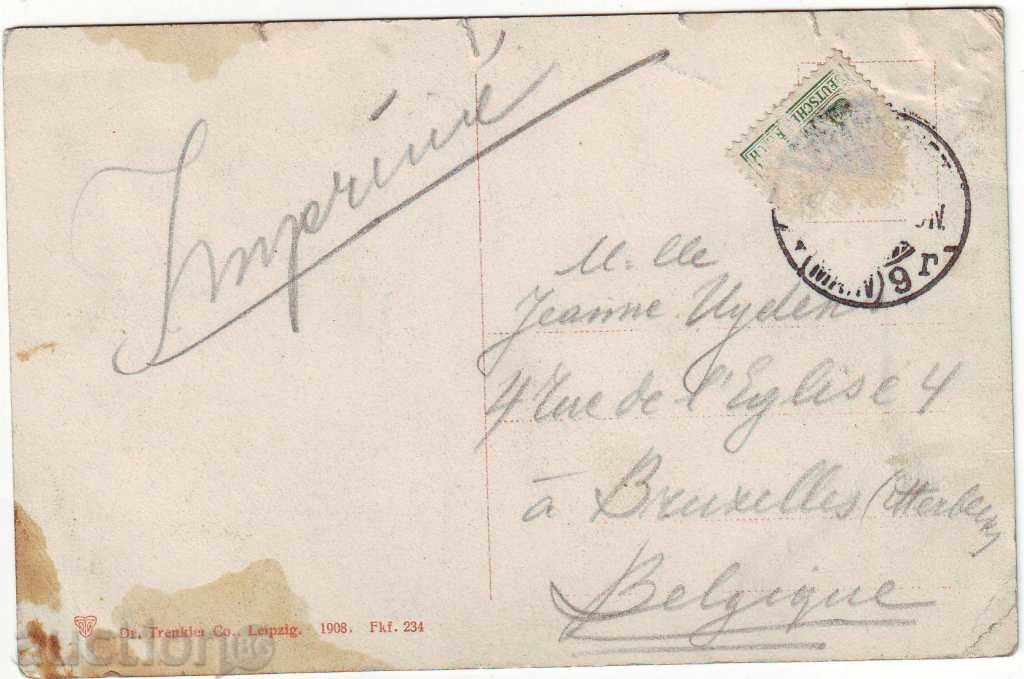 Imprimé
DEUTSCHES REICH
M.lle
Jeanne Uyden
4 Rue de l'Eglise 4
à Bruxelles (Etterbeek)
Belgique
Dr. Trenkler Co., Leipzig. 1908. Fkf. 234
auction.BG